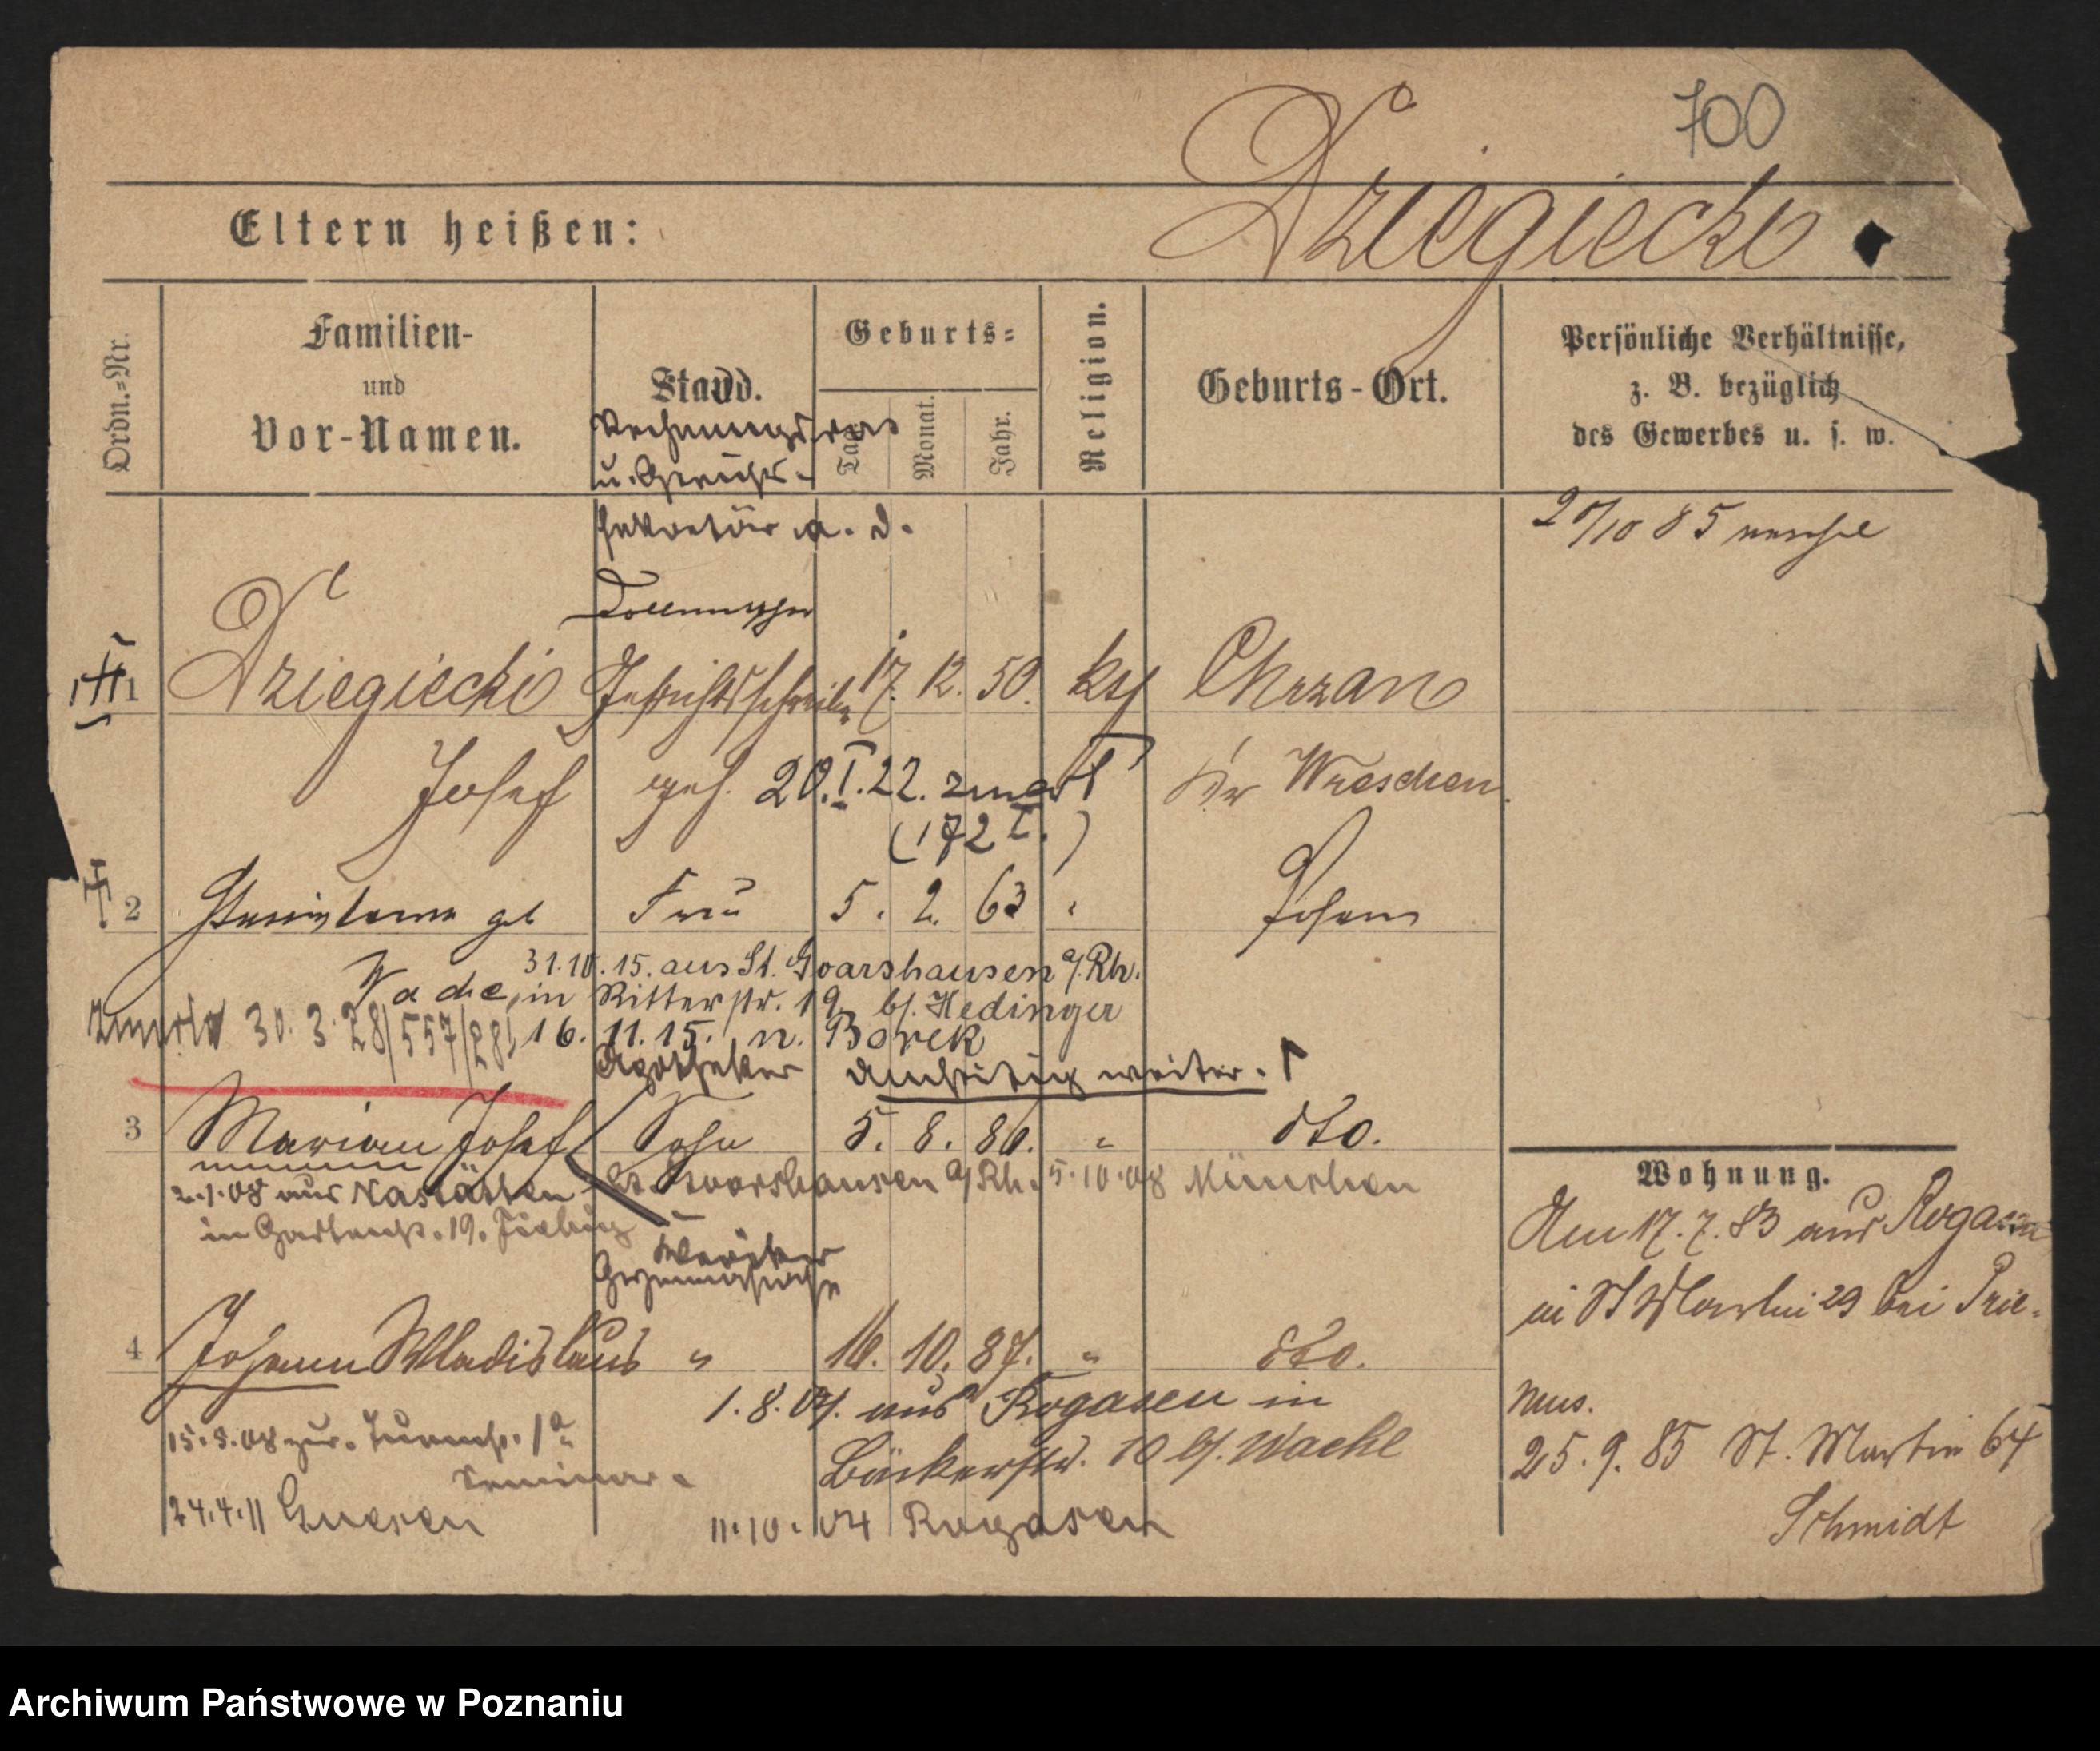 700
Dziegiecki
Eltern heißen:
Ordn.=Nr.
Familien-
und
Vor-Namen.
Stand.
Geburts=
Tag.
Monat.
Jahr.
Religion.
Geburts-Ort.
Persönliche Verhältnisse,
z. B. bezüglich
des Gewerbes u. s. w.
Rechnungsrat
u. Gerichts-
sekretär a. D.
20/10 85
1 Dziegiecki Gerichtsschreiber 17. 12. 50. kth Chrzan
Josef geh. 20.I.22. zmarł Kr Wreschen
(172 I.)
2 Stanislawa geb Frau 5. 2. 63 " Posen
Wache, 31.10.15. aus St. Goarshausen a/Rh.
in Ritterstr. 19 bei Hedinger
zmarła 30.3.28/557/28/ 16.11.15. n. Borek
Apotheker weiter.
3 Marian Josef Sohn 5. 8. 86. " dto.
2.1.08 aus Nastätten St. Goarshausen a/Rh. 5.10.08 München
in Gartenstr. 19.
4 Johann Wladislaus " 16. 10. 87. " dto.
1.8.04. aus Rogasen in
Bäckerstr. 10 bei Wache
15.5.08 zur. 1a
Seminar.
24.4.11 Gnesen
11.10.04 Rogasen
Wohnung.
Am 17.7.83 aus Rogasen
in St Martin 29 bei Prie-
mus.
25.9.85 St. Martin 64
Schmidt
Archiwum Państwowe w Poznaniu